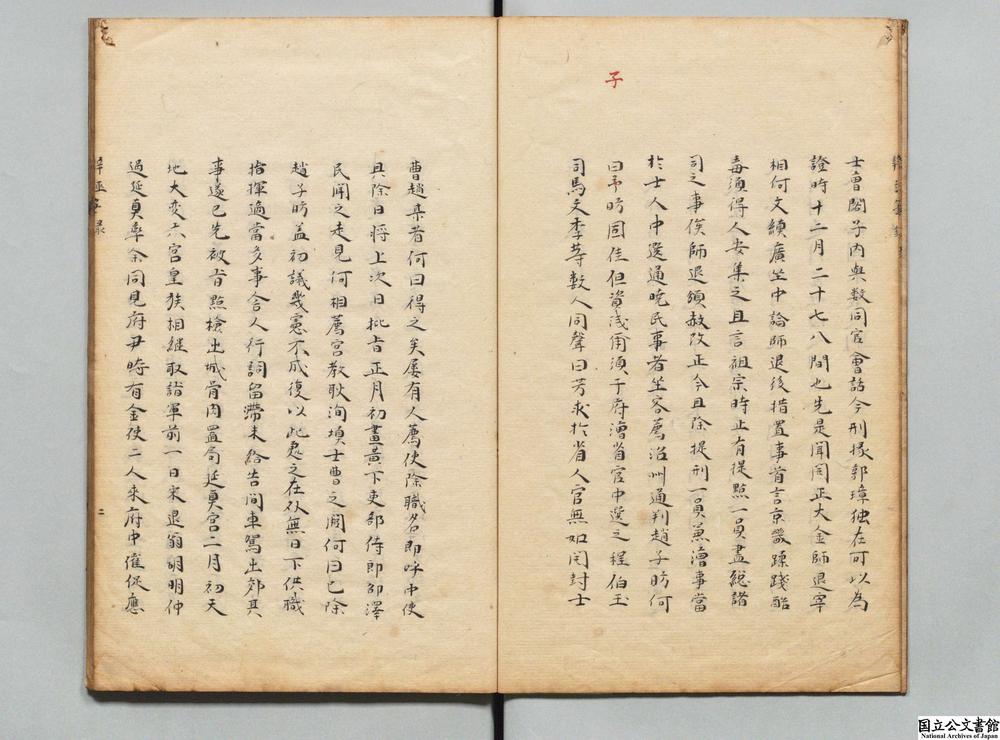 子
士會閣子內與数同官會話今刑掾郭璋独在可以為
證時十二月二十七八間也先是聞罔正大金師退宰
相何文縝廣坐中論師退後措置事首言京畿蹂踐酷
毒須得人安集之且言祖宗時止有提點一員盡総諸
司之事俟師退頒赦改正今且除提刑一員兼漕事當
於士人中選通曉民事者坐客薦沿州通判趙子昉何
曰子昉固佳但資浅宜須于府漕省官中選之程伯玉
司馬文季等數人同聲曰芳求於省人官無如開封士
曹趙某者何曰得之矣屢有人薦使除職名即呼中使
具除目将上次日批旨正月初畫黃下吏部侍郎邵澤
民聞之走見何相薦宮教耿洵填士曹之闕何曰已除
趙子昉盖初議幾憲不成復以此處之在仆無日下供職
指揮適當多事舍人行詞留滯未給告間車駕出郊其
事遂已先被旨點檢出城官內置局延真宮二月初天
地大变六宮皇族相継取詣軍前一日宋退翁胡明仲
過延真率余同見府尹時有金使二人來府中催促應
二
国立公文書館
National Archives of Japan